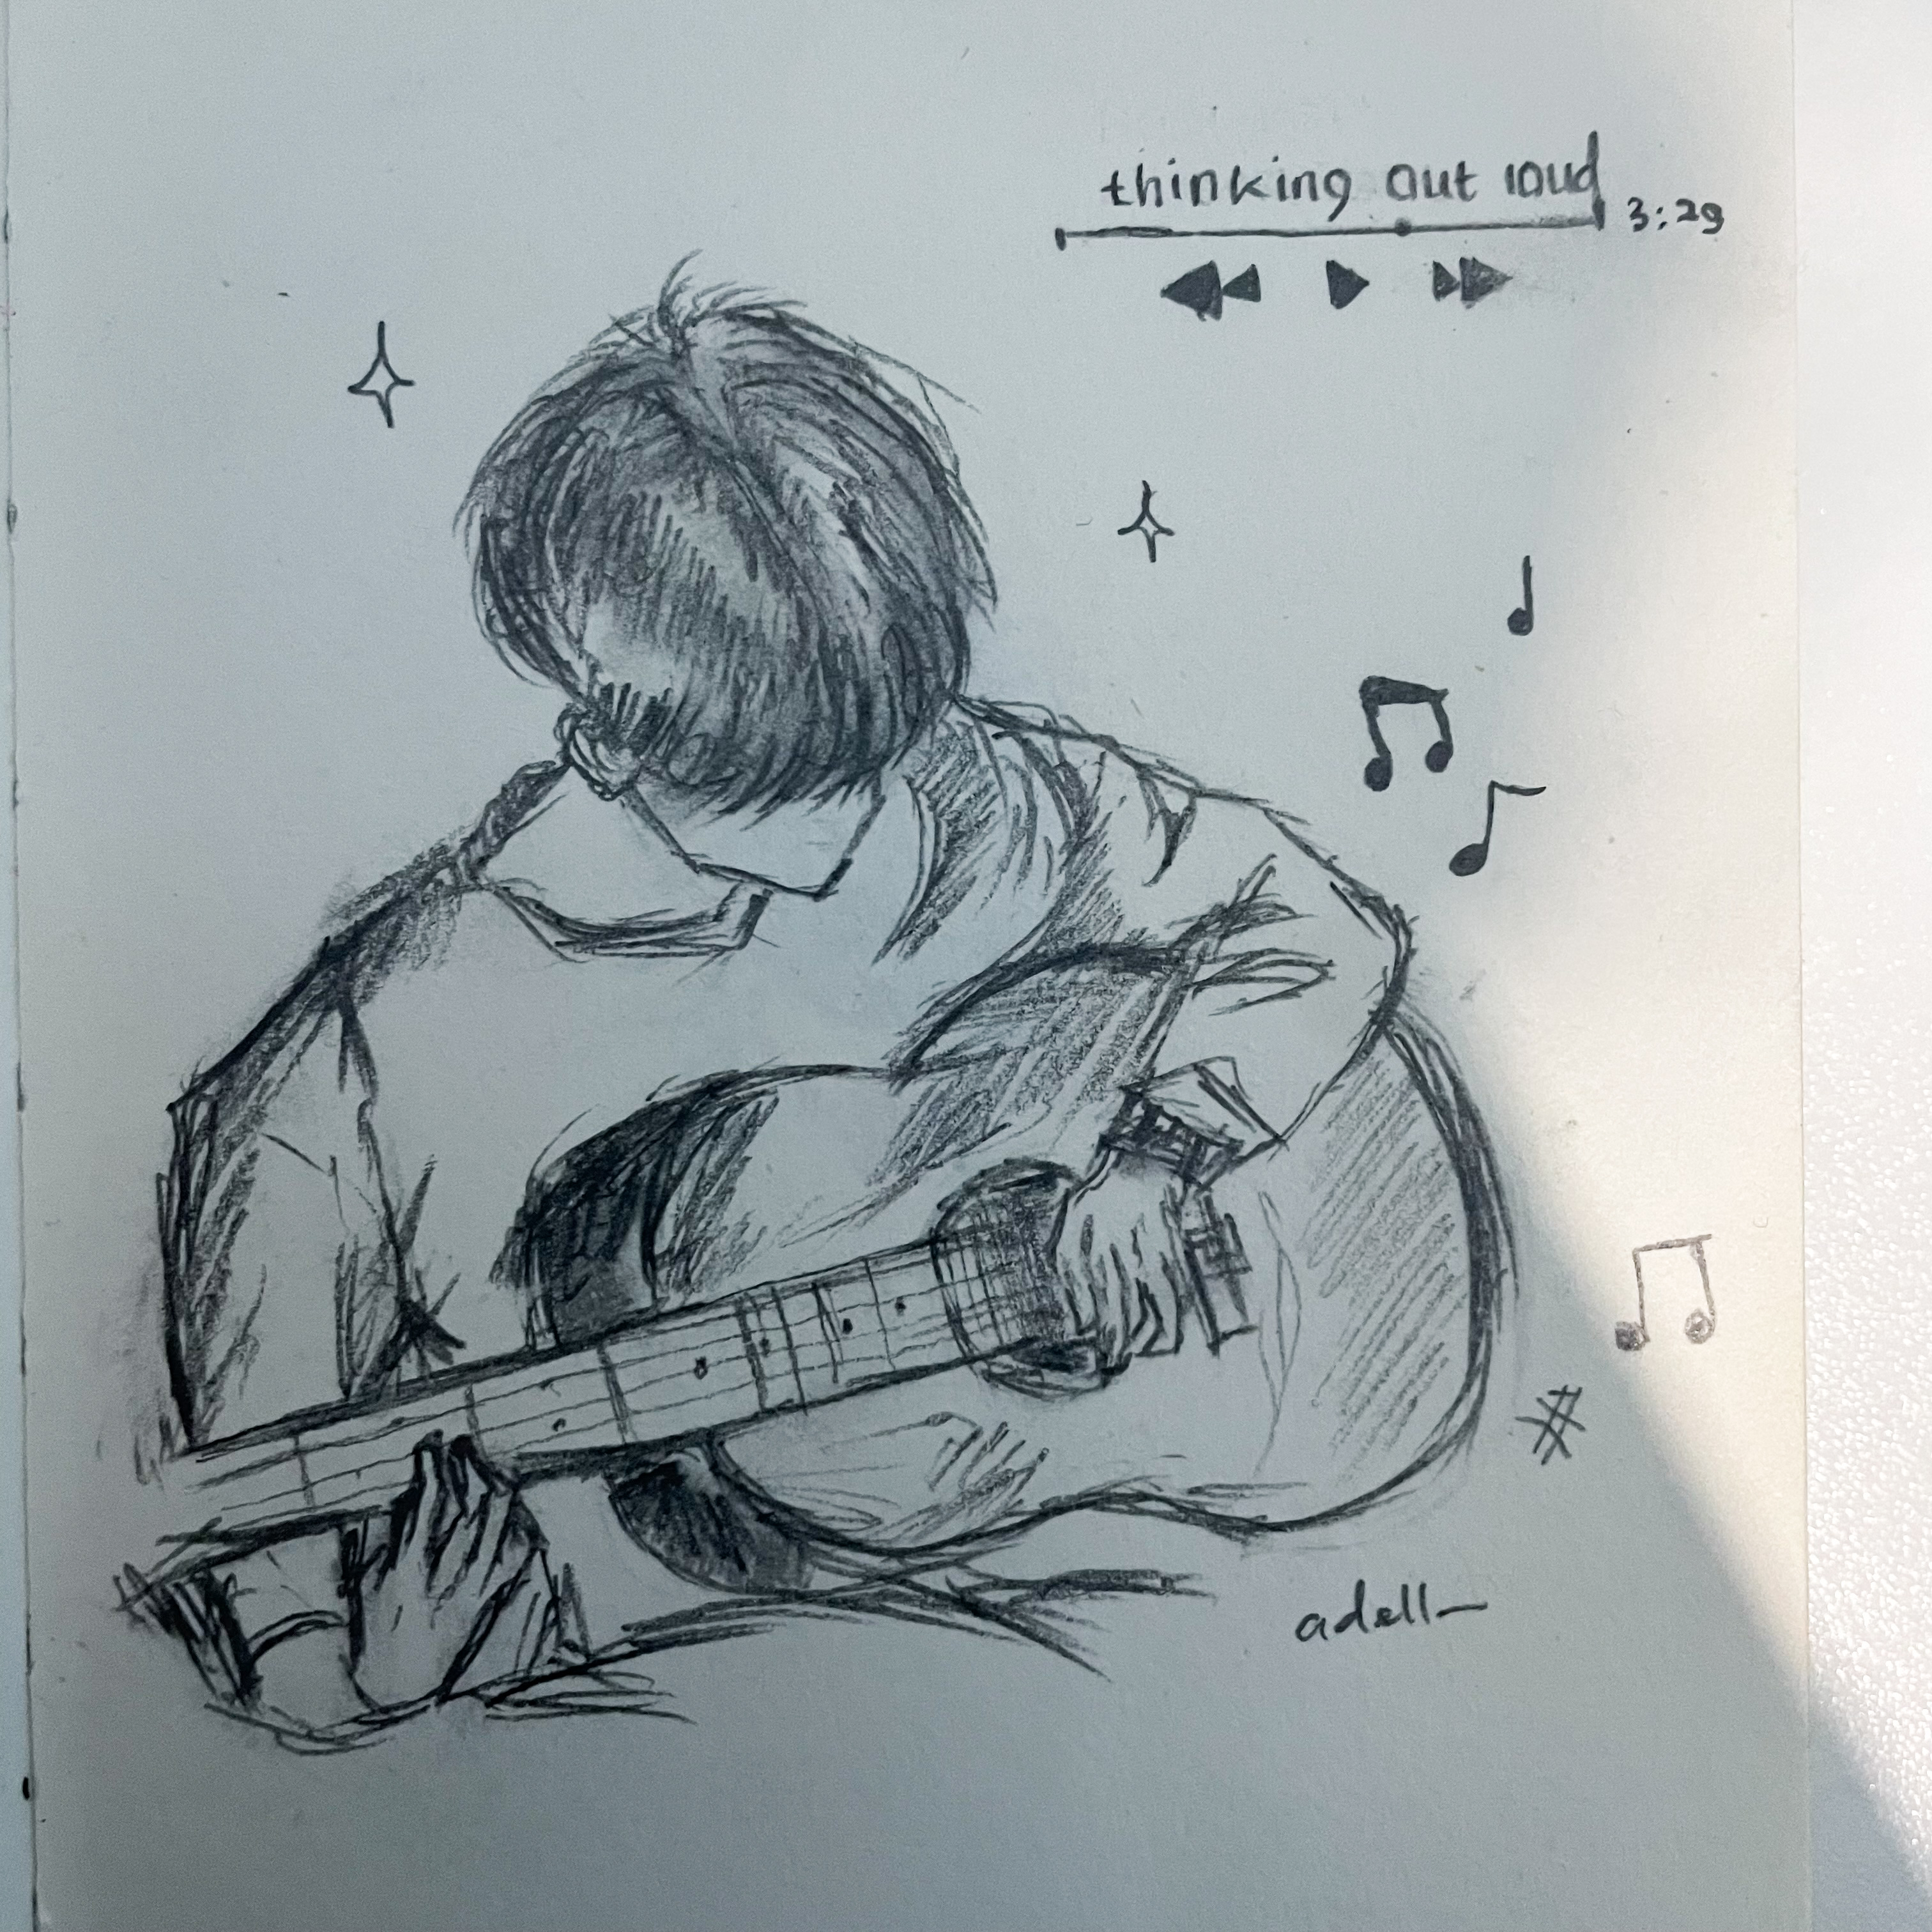 thinking out loud
3:29
adell